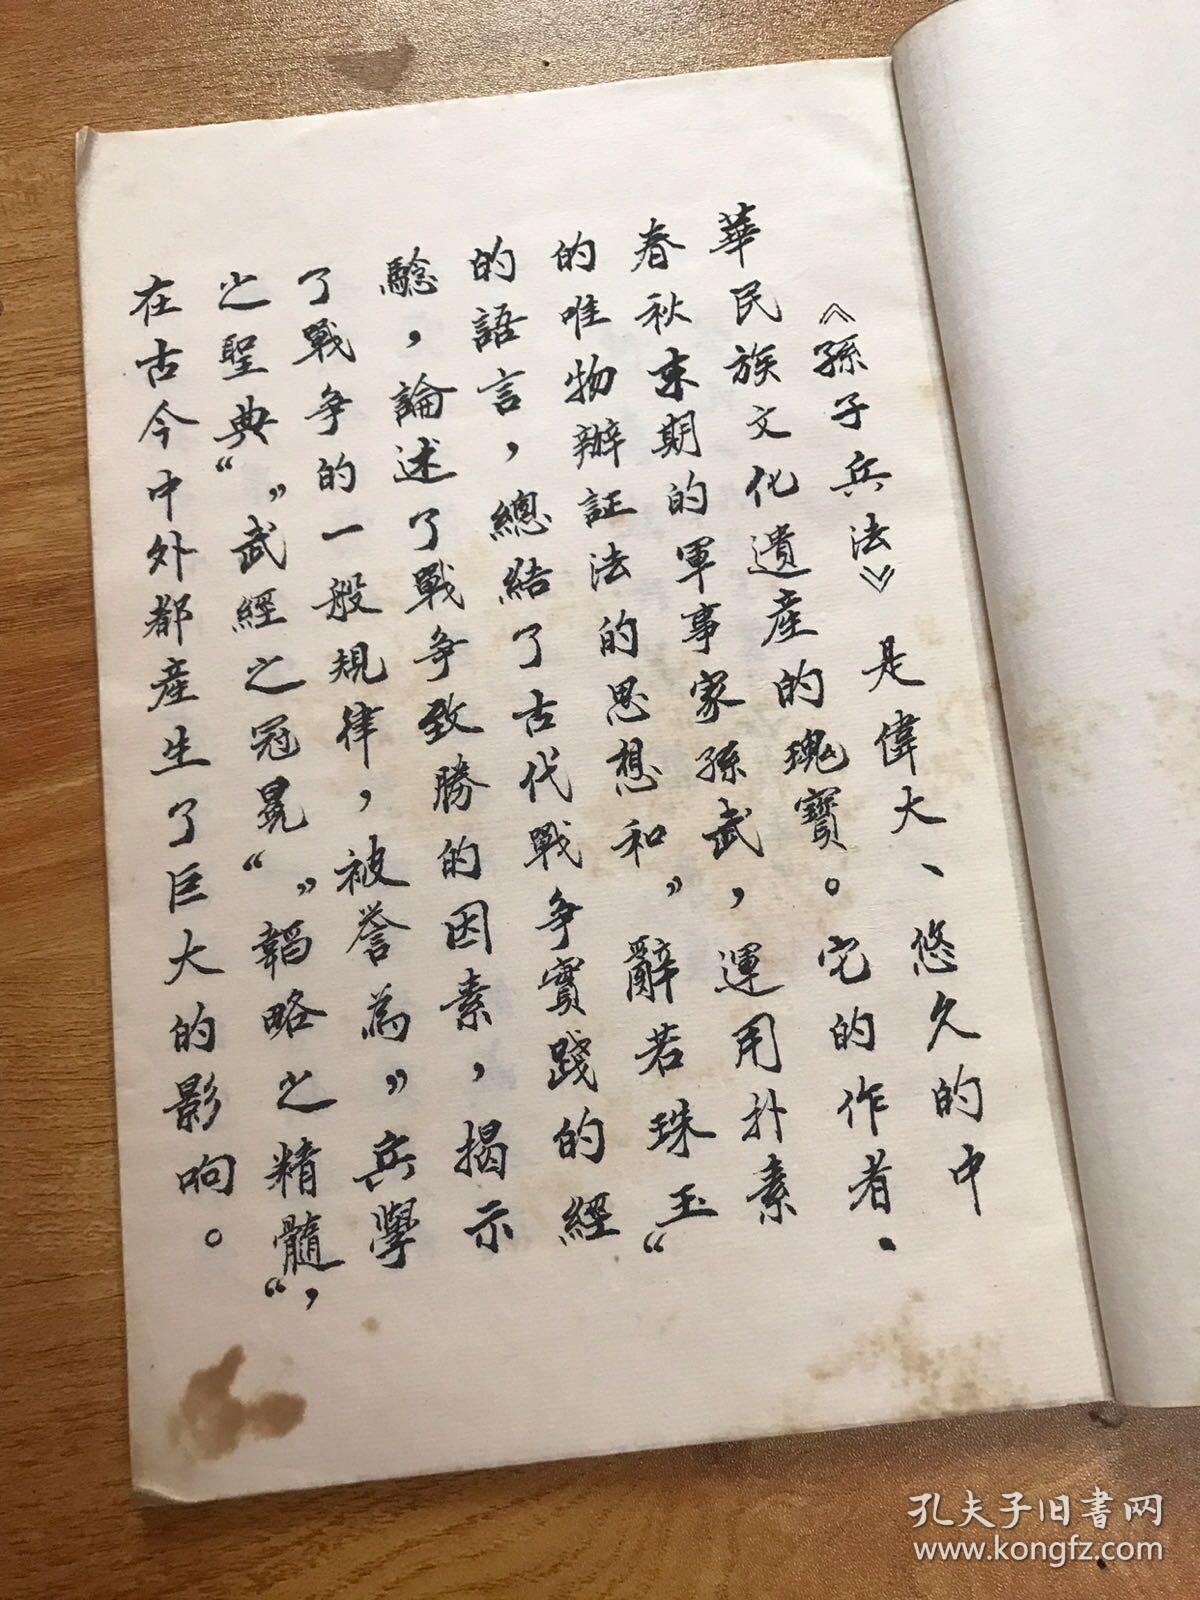 《孫子兵法》是偉大、悠久的中
華民族文化遺産的瑰寶。它的作者、
春秋末期的軍事家孫武，運用朴素
的唯物辦証法的思想和”辭若珠玉“
的語言，總結了古代戰争實踐的經
驗，論述了戰争致勝的因素，揭示
了戰争的一般規律，被誉為”兵學
之聖典“”武經之冠冕“”韜略之精髓“，
在古今中外都産生了巨大的影响。
孔夫子旧書网
www.kongfz.com